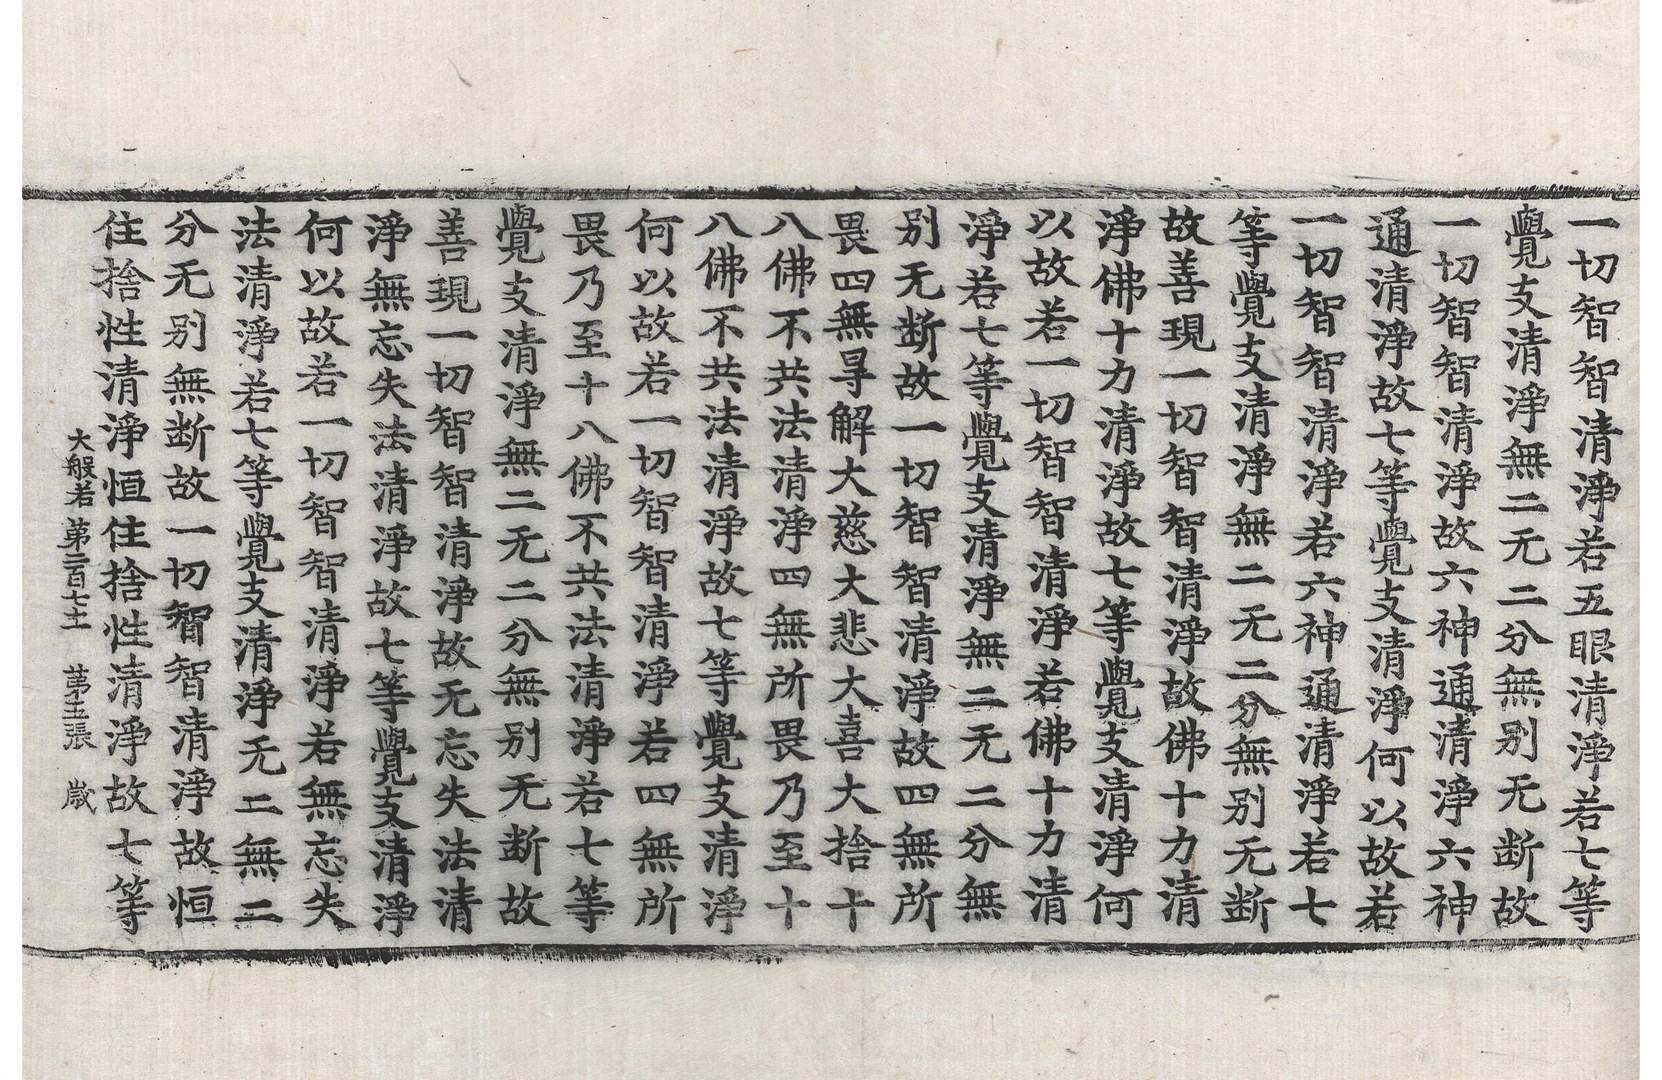 一切智智清淨若五眼清淨若七等
覺支清淨無二无二分無别无断故
一切智智清淨故六神通清淨六神
通清淨故七等覺支清淨何以故若
一切智智清淨若六神通清淨若七
等覺支清淨無二无二分無别无断
故善現一切智智清淨故佛十力清
淨佛十力清淨故七等覺支清淨何
以故若一切智智清淨若佛十力清
淨若七等覺支清淨無二无二分無
别无断故一切智智清淨故四無所
畏四無㝵解大慈大悲大喜大捨十
八佛不共法清淨四無所畏乃至十
八佛不共法清淨故七等覺支清淨
何以故若一切智智清淨若四無所
畏乃至十八佛不共法清淨若七等
覺支清淨無二无二分無别无断故
善現一切智智清淨故无忘失法清
淨無忘失法清淨故七等覺支清淨
何以故若一切智智清淨若無忘失
法清淨若七等覺支清淨无二無二
分无别無断故一切智智清淨故恒
住捨性清淨恒住捨性清淨故七等
大般若第二百七十一 第五張 歲